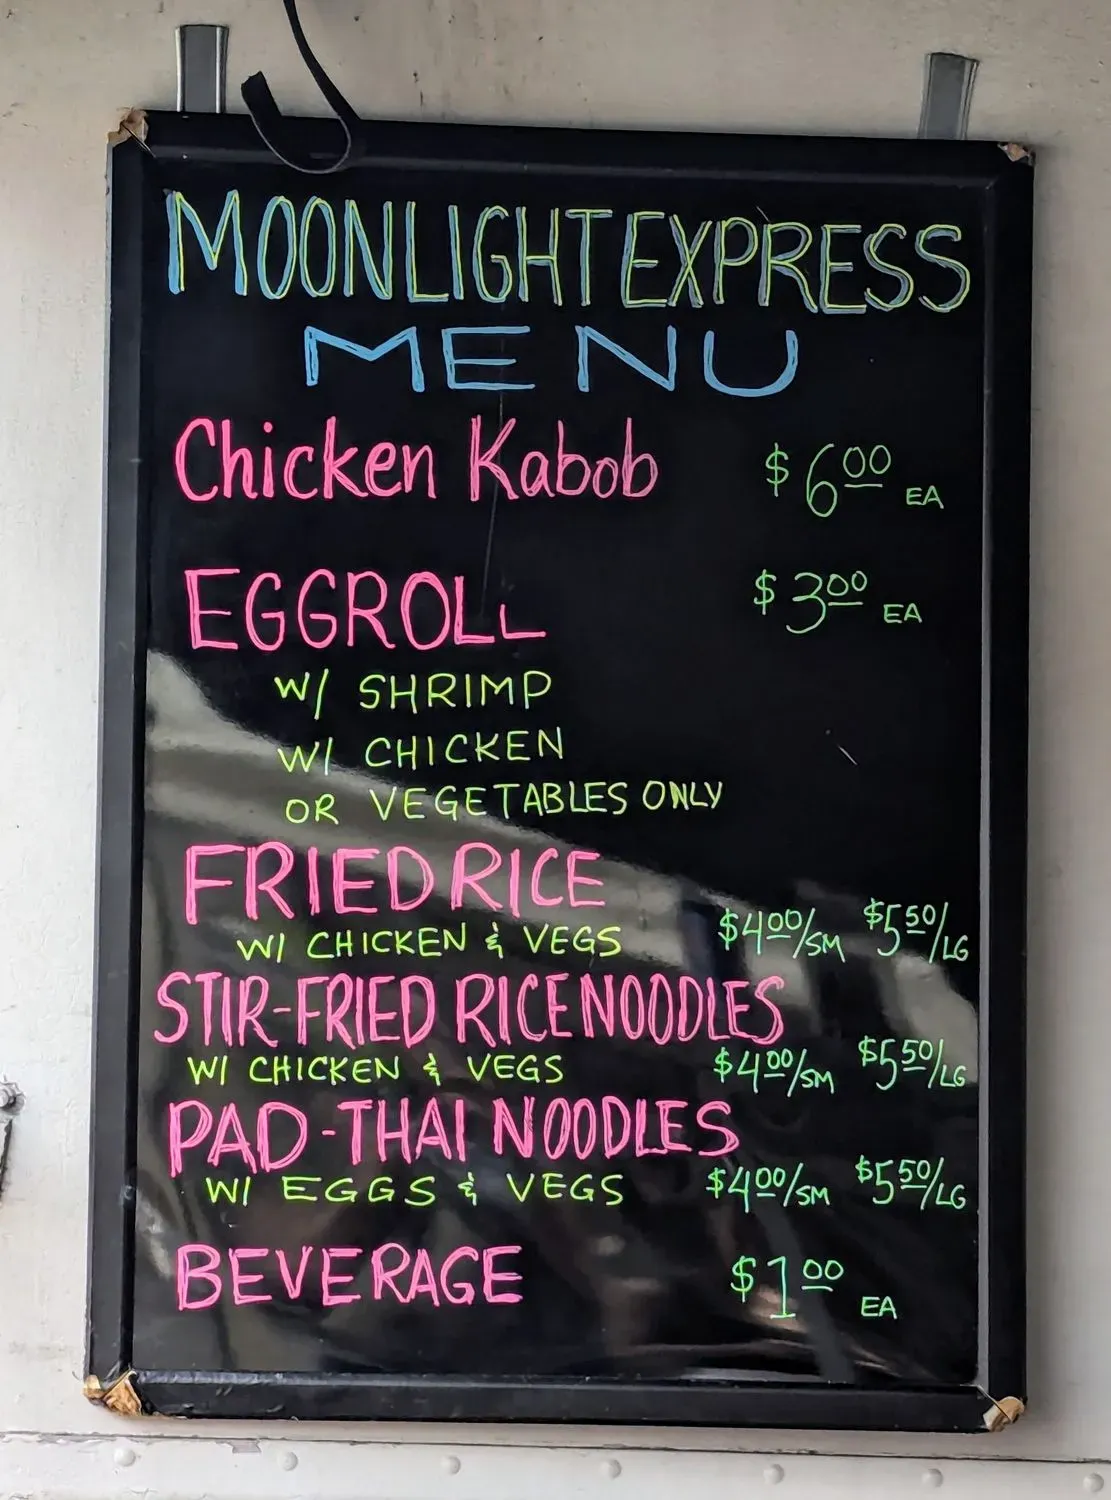 MOONLIGHT EXPRESS
MENU
Chicken Kabob $6.00 EA
EGGROLL $3.00 EA
W/ SHRIMP
W/ CHICKEN
OR VEGETABLES ONLY
FRIED RICE
W/ CHICKEN & VEGS $4.00/SM $5.50/LG
STIR-FRIED RICE NOODLES
W/ CHICKEN & VEGS $4.00/SM $5.50/LG
PAD-THAI NOODLES
W/ EGGS & VEGS $4.00/SM $5.50/LG
BEVERAGE $1.00 EA